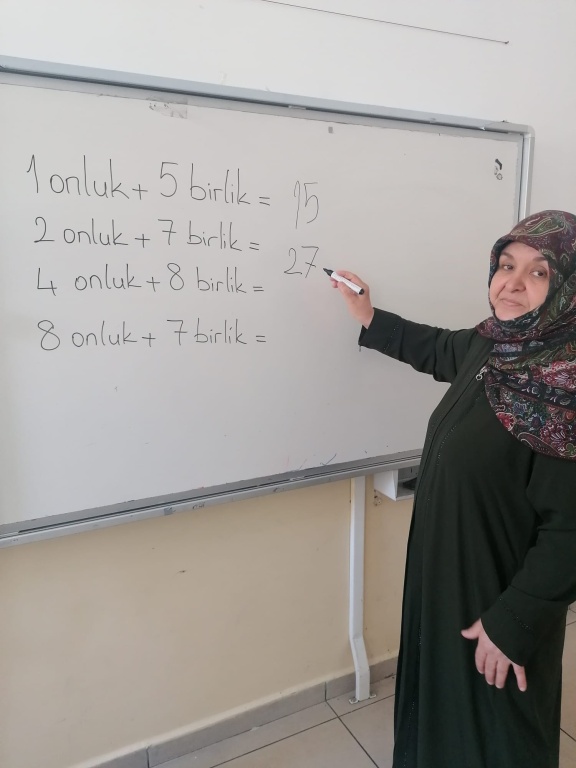 1 onluk + 5 birlik = 15
2 onluk + 7 birlik = 27
4 onluk + 8 birlik =
8 onluk + 7 birlik =